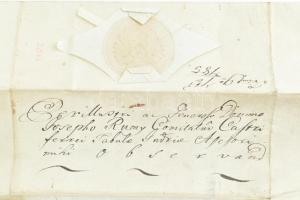 Perillustri ac Generoso Domino
Josepho Rumy Comitatus Castri
ferrei Tabulæ Judriæ Assessori
mihi Observand